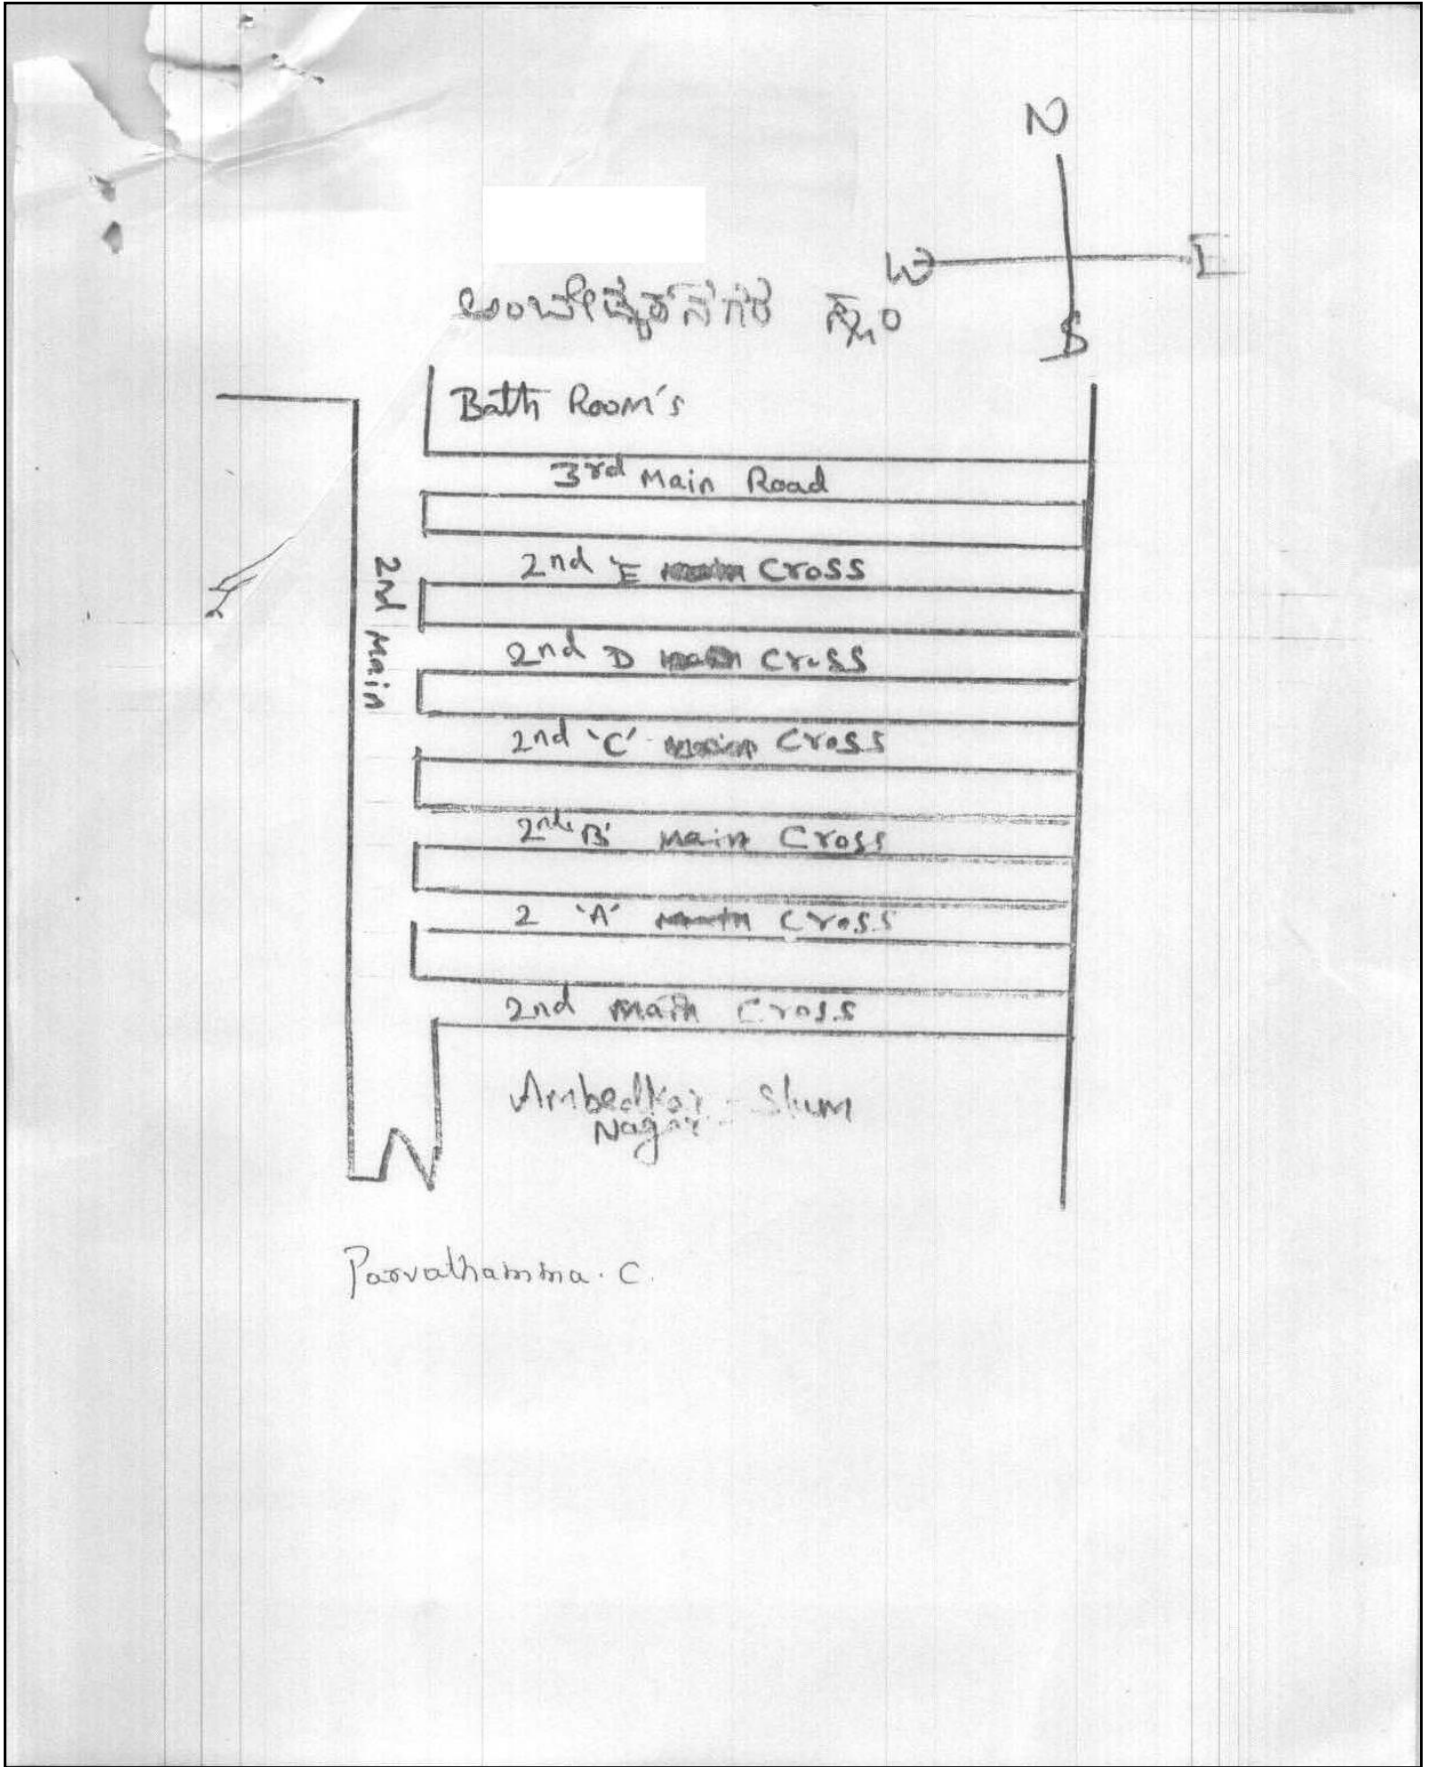 N
W E
ಅಂಬೇಡ್ಕರ್ ನಗರ ಸ್ಲಂ
S
Bath Room's
3rd Main Road
2nd 'E Cross
2nd Main
2nd D Cross
2nd 'C' Cross
2nd 'B' Main Cross
2 'A' Cross
2nd Main Cross
Ambedkar - Slum
Nagar
Parvathamma. C.